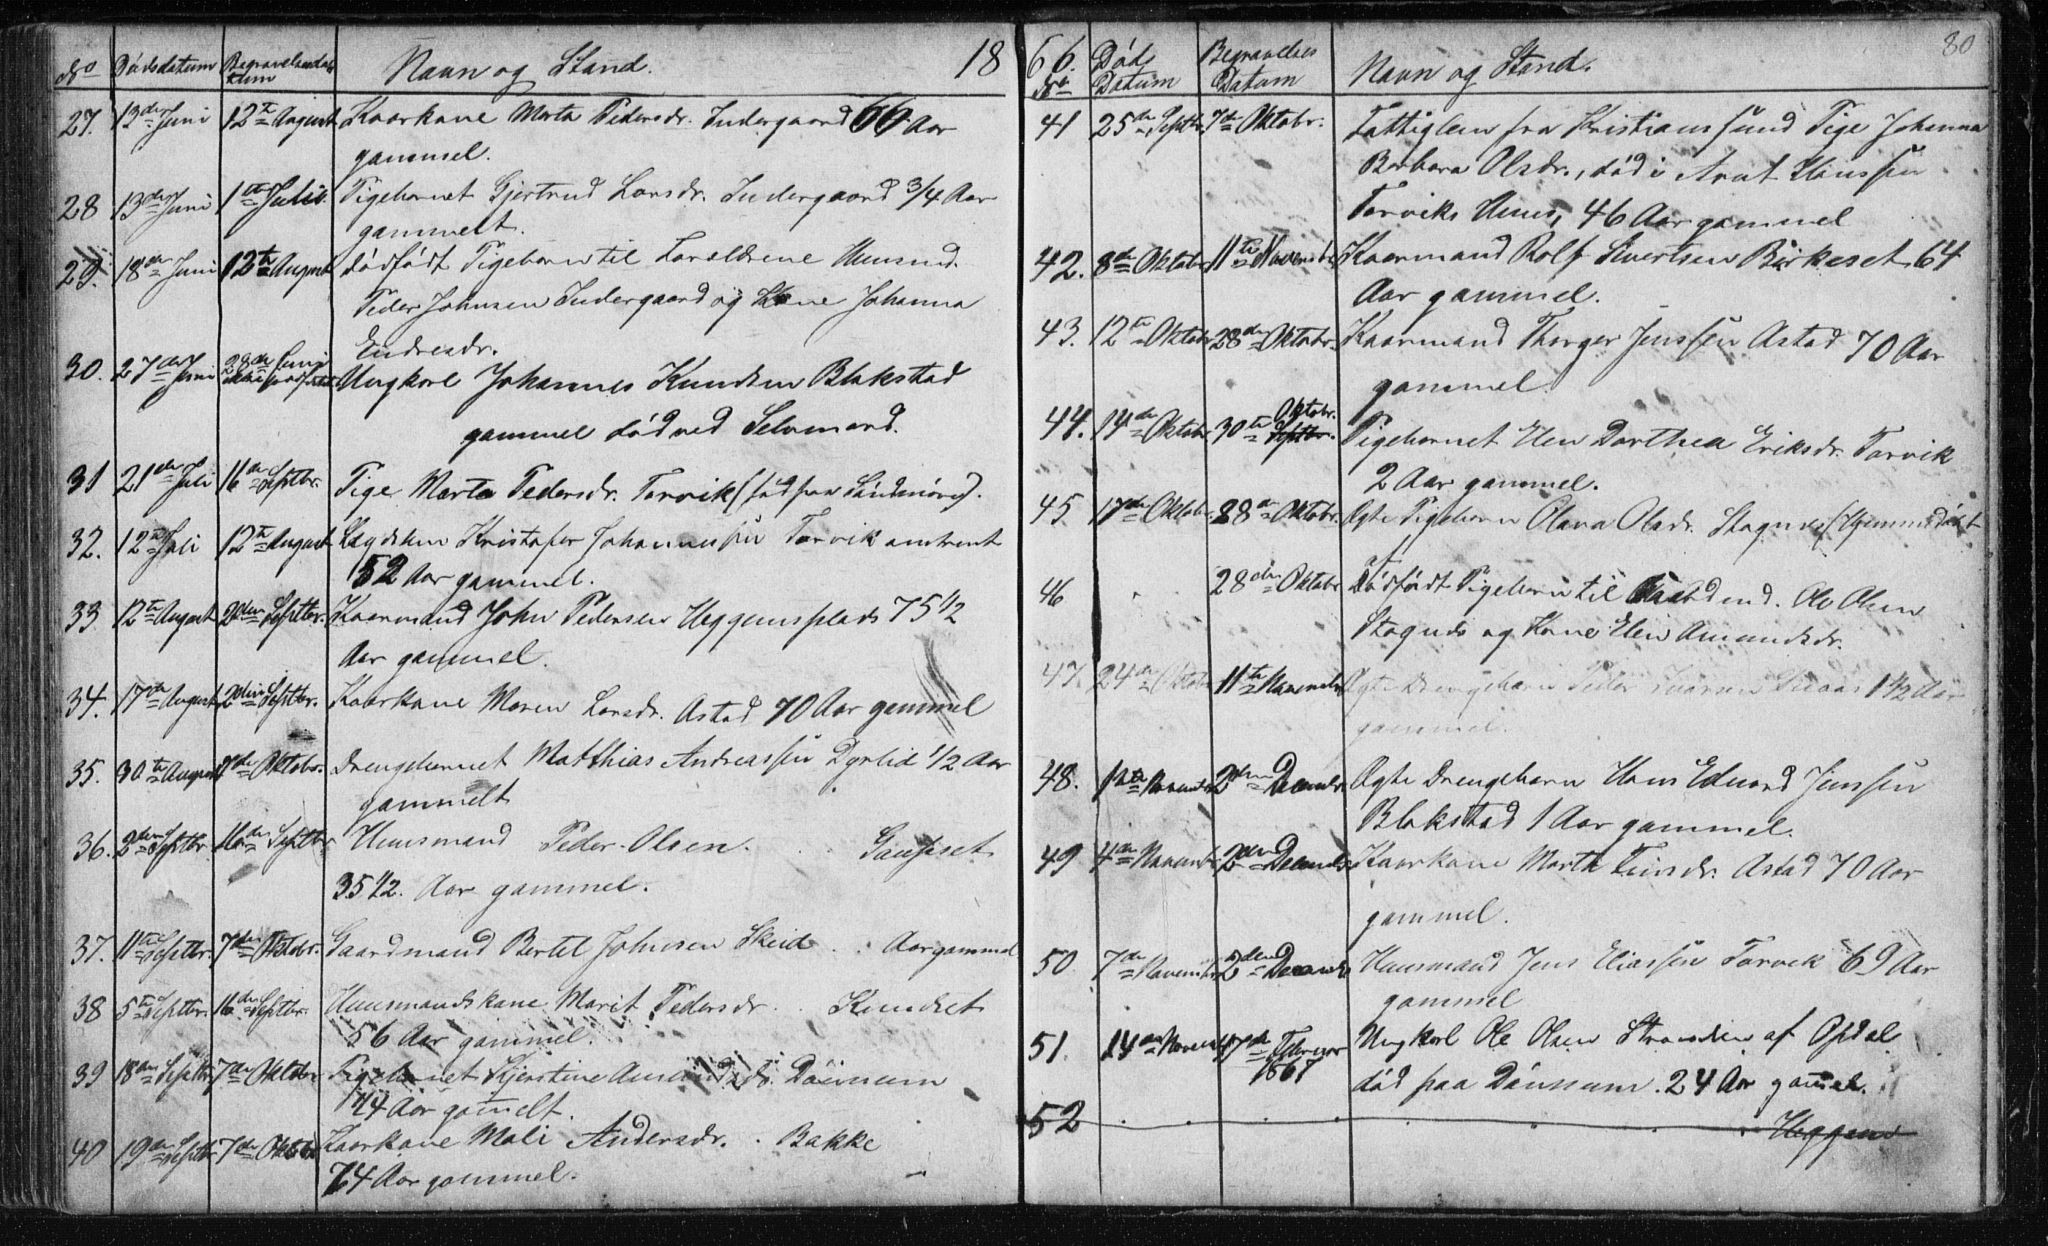 No Dödsdatum Begravelsesdatum Navn og Stand. 18
27. 13de Juni 12te August Kaarkone Marta Pedersdr. Indergaard 66 Aar
gammel.
28 13de Juni 1ste Juli Pigebarnet Gjertrud Larsdr. Indergaard 3/4 Aar
gammelt.
29. 18de Juni 12te August Dödfödt Pigebarn til Huusmd.
Peder Johnsen Indergaard og Kone Johanna
Endresdr.
30. 27de Juni 28de Juni Ungkarl Johannes Knudsen Blakstad
gammel död ved Selvmord.
31 21de Juli 16de Septbr. Pige Marta Pedersdr. Torvik (föd paa Söndmöre).
32. 12te Juli 12te August Lægdslem Kristofer Johannessen Torvik omtrent
52 Aar gammel.
33 12te August 2den Septbr. Kaarmand John Pedersen Heggemsplads 75 1/2
Aar gammel.
34. 17de August 2den Septbr. Kaarkone Maren Larsdr. Astad 70 Aar gammel
35. 30te August 7de Oktobr. Drengebarnet Matthias Andreassen Dyrlid 1/2 Aar
gammelt
36. 2den Septbr. 16de Septbr Huusmand Peder Olsen. Gaupset
35 1/2. Aar gammel.
37. 11te Septbr. 7de Oktobr. Gaardmand Bertel Johnsen Skeid . . Aar gammel
38 5te Septbr. 16de Septbr. Huusmandskone Marit Pedersdr . . Knudset
56 Aar gammel.
39 18de Septbr 7de Oktobr Pigebarnet Kjerstine Amundsdr. Döinnem
1/4 Aar gamelt.
40 19de Septbr 7de Oktobr Kaarkone Mali Andersdr. . Bakke
74 Aar gammel. –
66. 80
No Döds Datum Begravelses Datum Navn og Stand.
41 25de Septbr 7de Oktobr. Fattiglem fra Kristianssund Pige Johanna
Barbara Olsdr., död i Arnt Hanssen
Torviks Huus, 46 Aar gammel
42. 8de Oktobr 11te Novembr Kaarmand Rolf Sivertsen Birkeset 64
Aar gammel.
43. 12te Oktobr 28de Oktobr. Kaarmand Thorger Jenssen Astad 70 Aar
gammel
44. 14de Oktobr 30te Septbr. Oktobr. Pigebarnet Elen Dorthea Eriksdr. Torvik
2 Aar gammel.
45. 17de Oktobr. 28de Oktobr. Ægte Pigebarn Olava Olsdr. Stagnæs (Hjemmedöbt
46 28de Oktobr Dödfödt Pigebarn til Ole Olsen
Stagnæs og Kone Elen Amundsdr.
47. 24de Oktobr 11te Novembr Ægte Drengebarn Peder 1 1/2 Aar
gammel.
48. 1ste Novembr 2den Decembr. Ægte Drengebarn Hans Eduard Jenssen
Blakstad 1 Aar gammel.
49 4de Novembr 2den Decembr Kaarkone Marta Finsdr. Astad 70 Aar
gammel.
50 7de Novembr 2den Decembr Huusmand Jens Eliassen Torvik 69 Aar
gammel
51. 14de Novembr 17de Februar 1867 Ungkarl Ole Olsen Stranden af Opdal
död paa Dönnem. 24 Aar gammel.
52 . . . . . . . Heggem